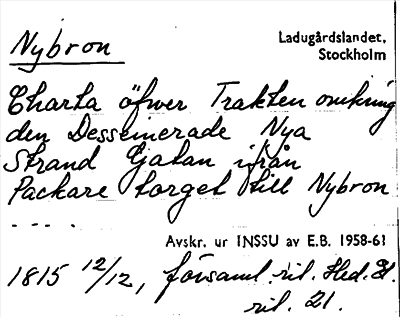 Nybron
Ladugårdslandet,
Stockholm
Charta öfwer Trakten omkring
den Desseinerade Nya
Strand Gatan ifrån
Packare torget till Nybron
- - - .
Avskr. ur INSSU av E.B. 1958-61
1815 12/12, församl. ril. Hed. El.
ril. 21.